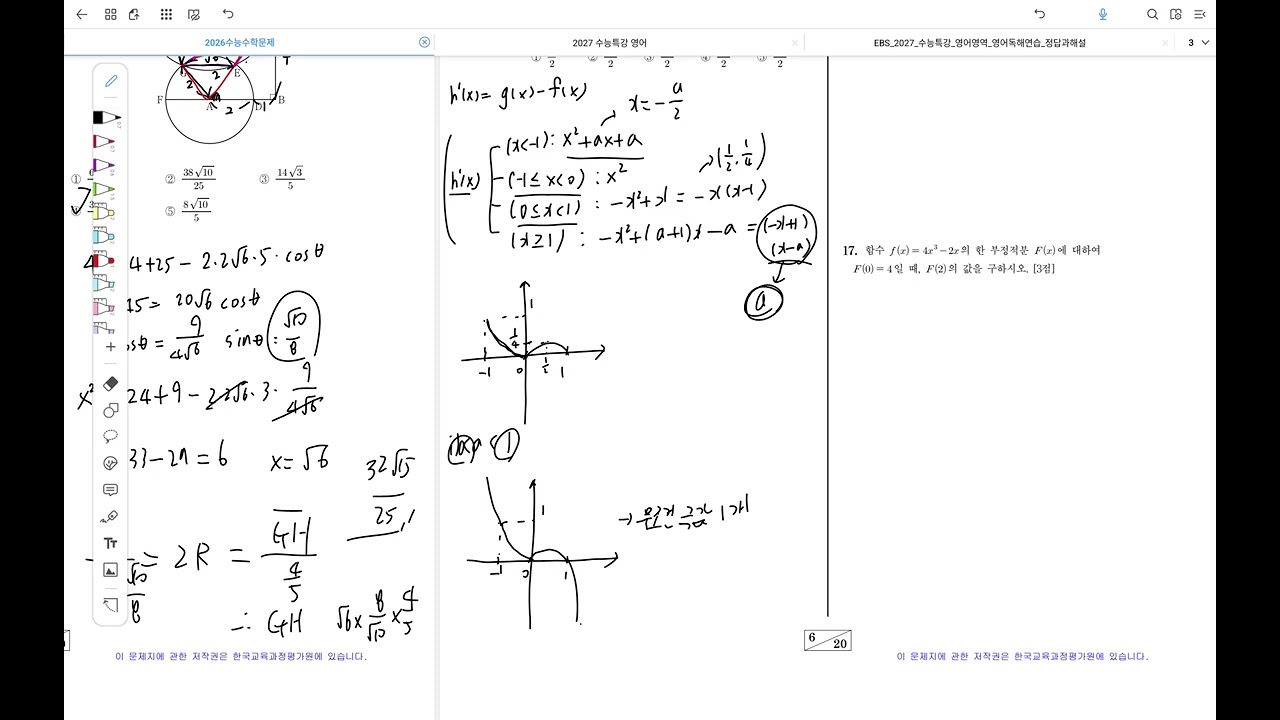 2026수능수학문제
2027 수능특강 영어
EBS_2027_수능특강_영어영역_영어독해연습_정답과해설
3
F
A
2
2
2
E
D
1
B
①
② 38√10/25
③ 14√3/5
⑤ 8√10/5
4+25 - 2·2√6·5·cosθ
15 = 20√6 cosθ
osθ = 9/4√6 sinθ : √10/8
x²
24+9 - 2·2√6·3· 9/4√6
33-27=6 x=√6
32√15/25
= 2R = GH / 4/5
∴ GH √6 × 8/√10 × 4/5
① /2 ② /2 ③ /2 ④ /2 ⑤ /2
h'(x) = g(x) - f(x)
x = - a/2
h'(x)
(x<-1) : x²+ax+a
(-1≤x<0) : x²
(1/2, 1/4)
(0≤x<1) : -x²+x = -x(x-1)
(x≥1) : -x²+(a+1)x-a = (-x+1)(x-a)
a
1
1/4
-1
0
1/2
1
1
-1
1
→ 무조건 극값 1개
17. 함수 f(x)=4x³-2x의 한 부정적분 F(x)에 대하여
F(0)=4일 때, F(2)의 값을 구하시오. [3점]
TT
이 문제지에 관한 저작권은 한국교육과정평가원에 있습니다.
6/20
이 문제지에 관한 저작권은 한국교육과정평가원에 있습니다.